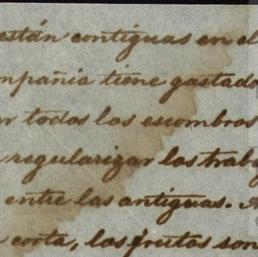 están contiguas en el
mpañia tiene gastado
r todos los escombros
regularizar los traba
entre las antiguas. A
corta, los frutos son